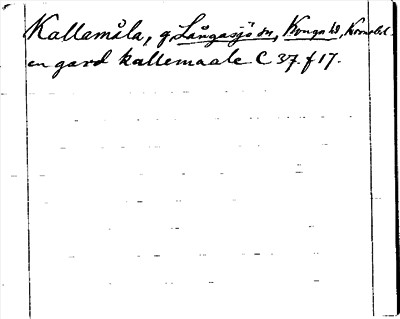 Kallamåla, g, Långasjö sn, Konga hd, Kronobd.
en gard kallemaale C 37. f 17.